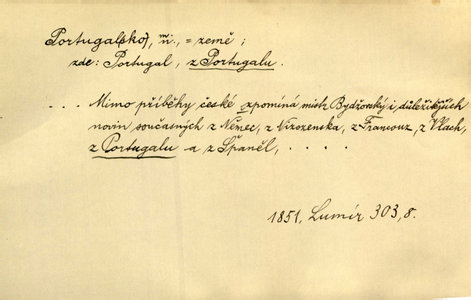 Portugal(sko), m. n., = země ;
zde: Portugal, z Portugalu.
.... Mimo příběhy české zpomíná mistr Bydžovský i důležitějších
novin současných z Němec, z Nizozemska, z Francouz, z Vlach,
z Portugalu a z Španěl, . . . .
1851, Lumír 303,8.